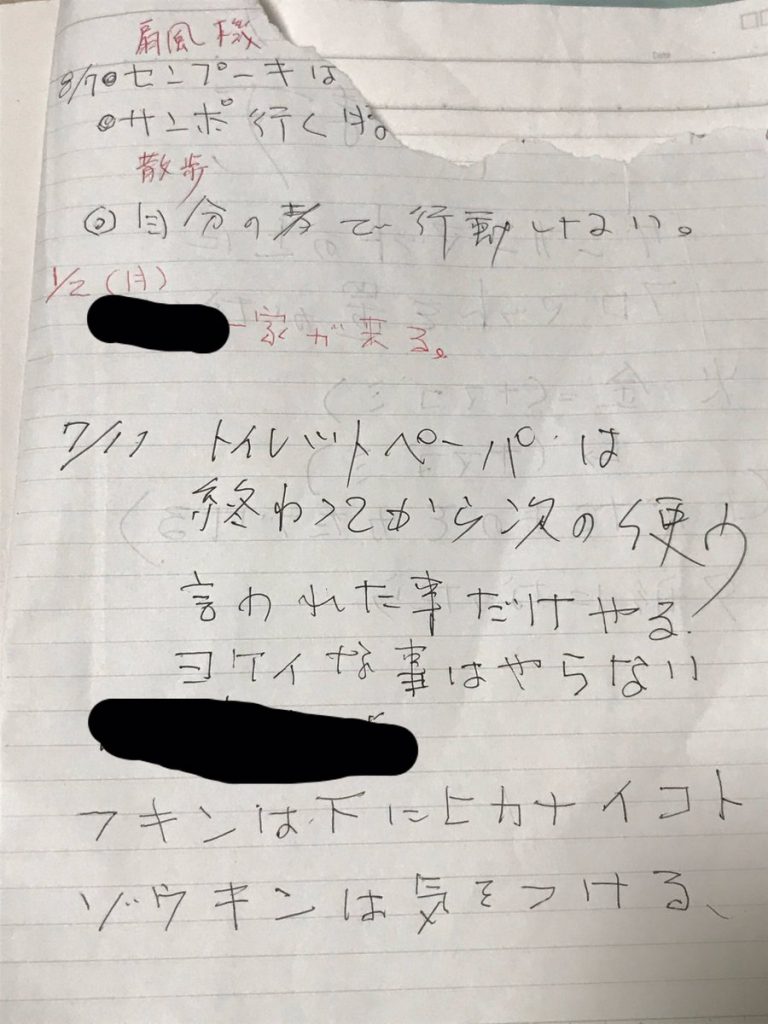 扇風機
8/7◎センプーキは
◎サンポ行く時。
散歩
◎自分の考で行動しない。
1/2(月)
一家が来る。
7/17 トイレットペーパは
終わってから次の使う
言われた事だけやる.
ヨケイな事はやらない
フキンは下にヒカナイコト
ゾウキンは気をつける、